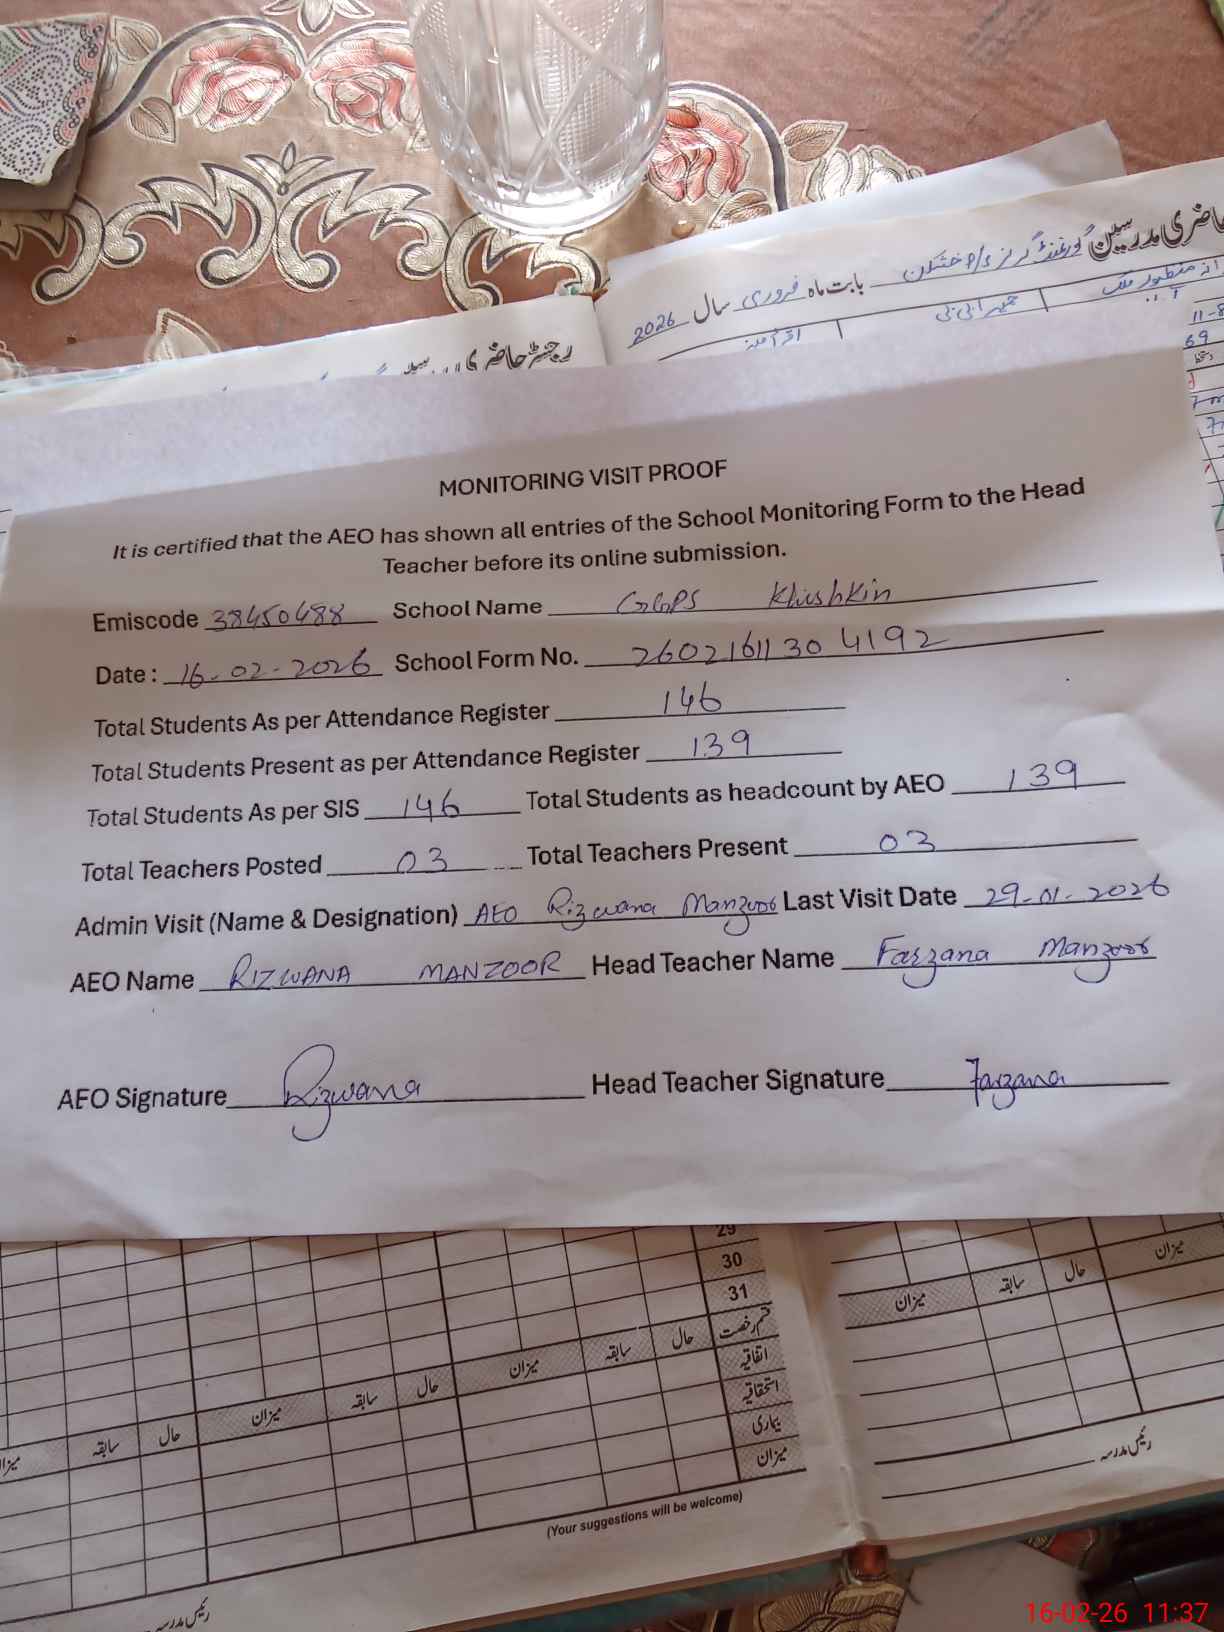 حاضری مدرسین گورنمنٹ گرلز
بابت ماہ فروری سال 2026
رجسٹر حاضری
11-8
69
MONITORING VISIT PROOF
It is certified that the AEO has shown all entries of the School Monitoring Form to the Head
Teacher before its online submission.
Emiscode 38450488 School Name GGPS Khushkin
Date : 16-02-2026 School Form No. 2602161130 4192
Total Students As per Attendance Register 146
Total Students Present as per Attendance Register 139
Total Students As per SIS 146 Total Students as headcount by AEO 139
Total Teachers Posted 03 Total Teachers Present 03
Admin Visit (Name & Designation) AEO Rizwana Manzoor Last Visit Date 29-01-2026
AEO Name RIZWANA MANZOOR Head Teacher Name Farzana Manzoor
AEO Signature Rizwana Head Teacher Signature Farzana
29
30
31
قسم رخصت حال سابقہ میزان حال سابقہ میزان حال سابقہ میزان
اتفاقیہ
استحقاقیہ
بیماری
میزان
میزان حال سابقہ میزان
رئیس مدرسہ
(Your suggestions will be welcome)
رئیس مدرسہ
16-02-26 11:37